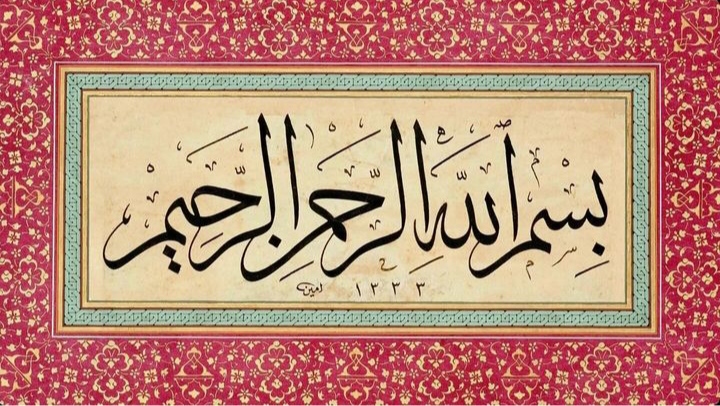 بِسْمِ اللهِ الرَّحْمٰنِ الرَّحِيمِ
١٣٣٣